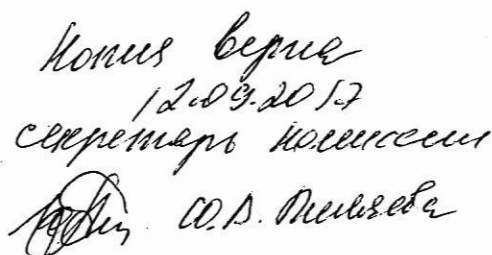 Копия верна
12.09.2017
секретарь комиссии
Ю.В.